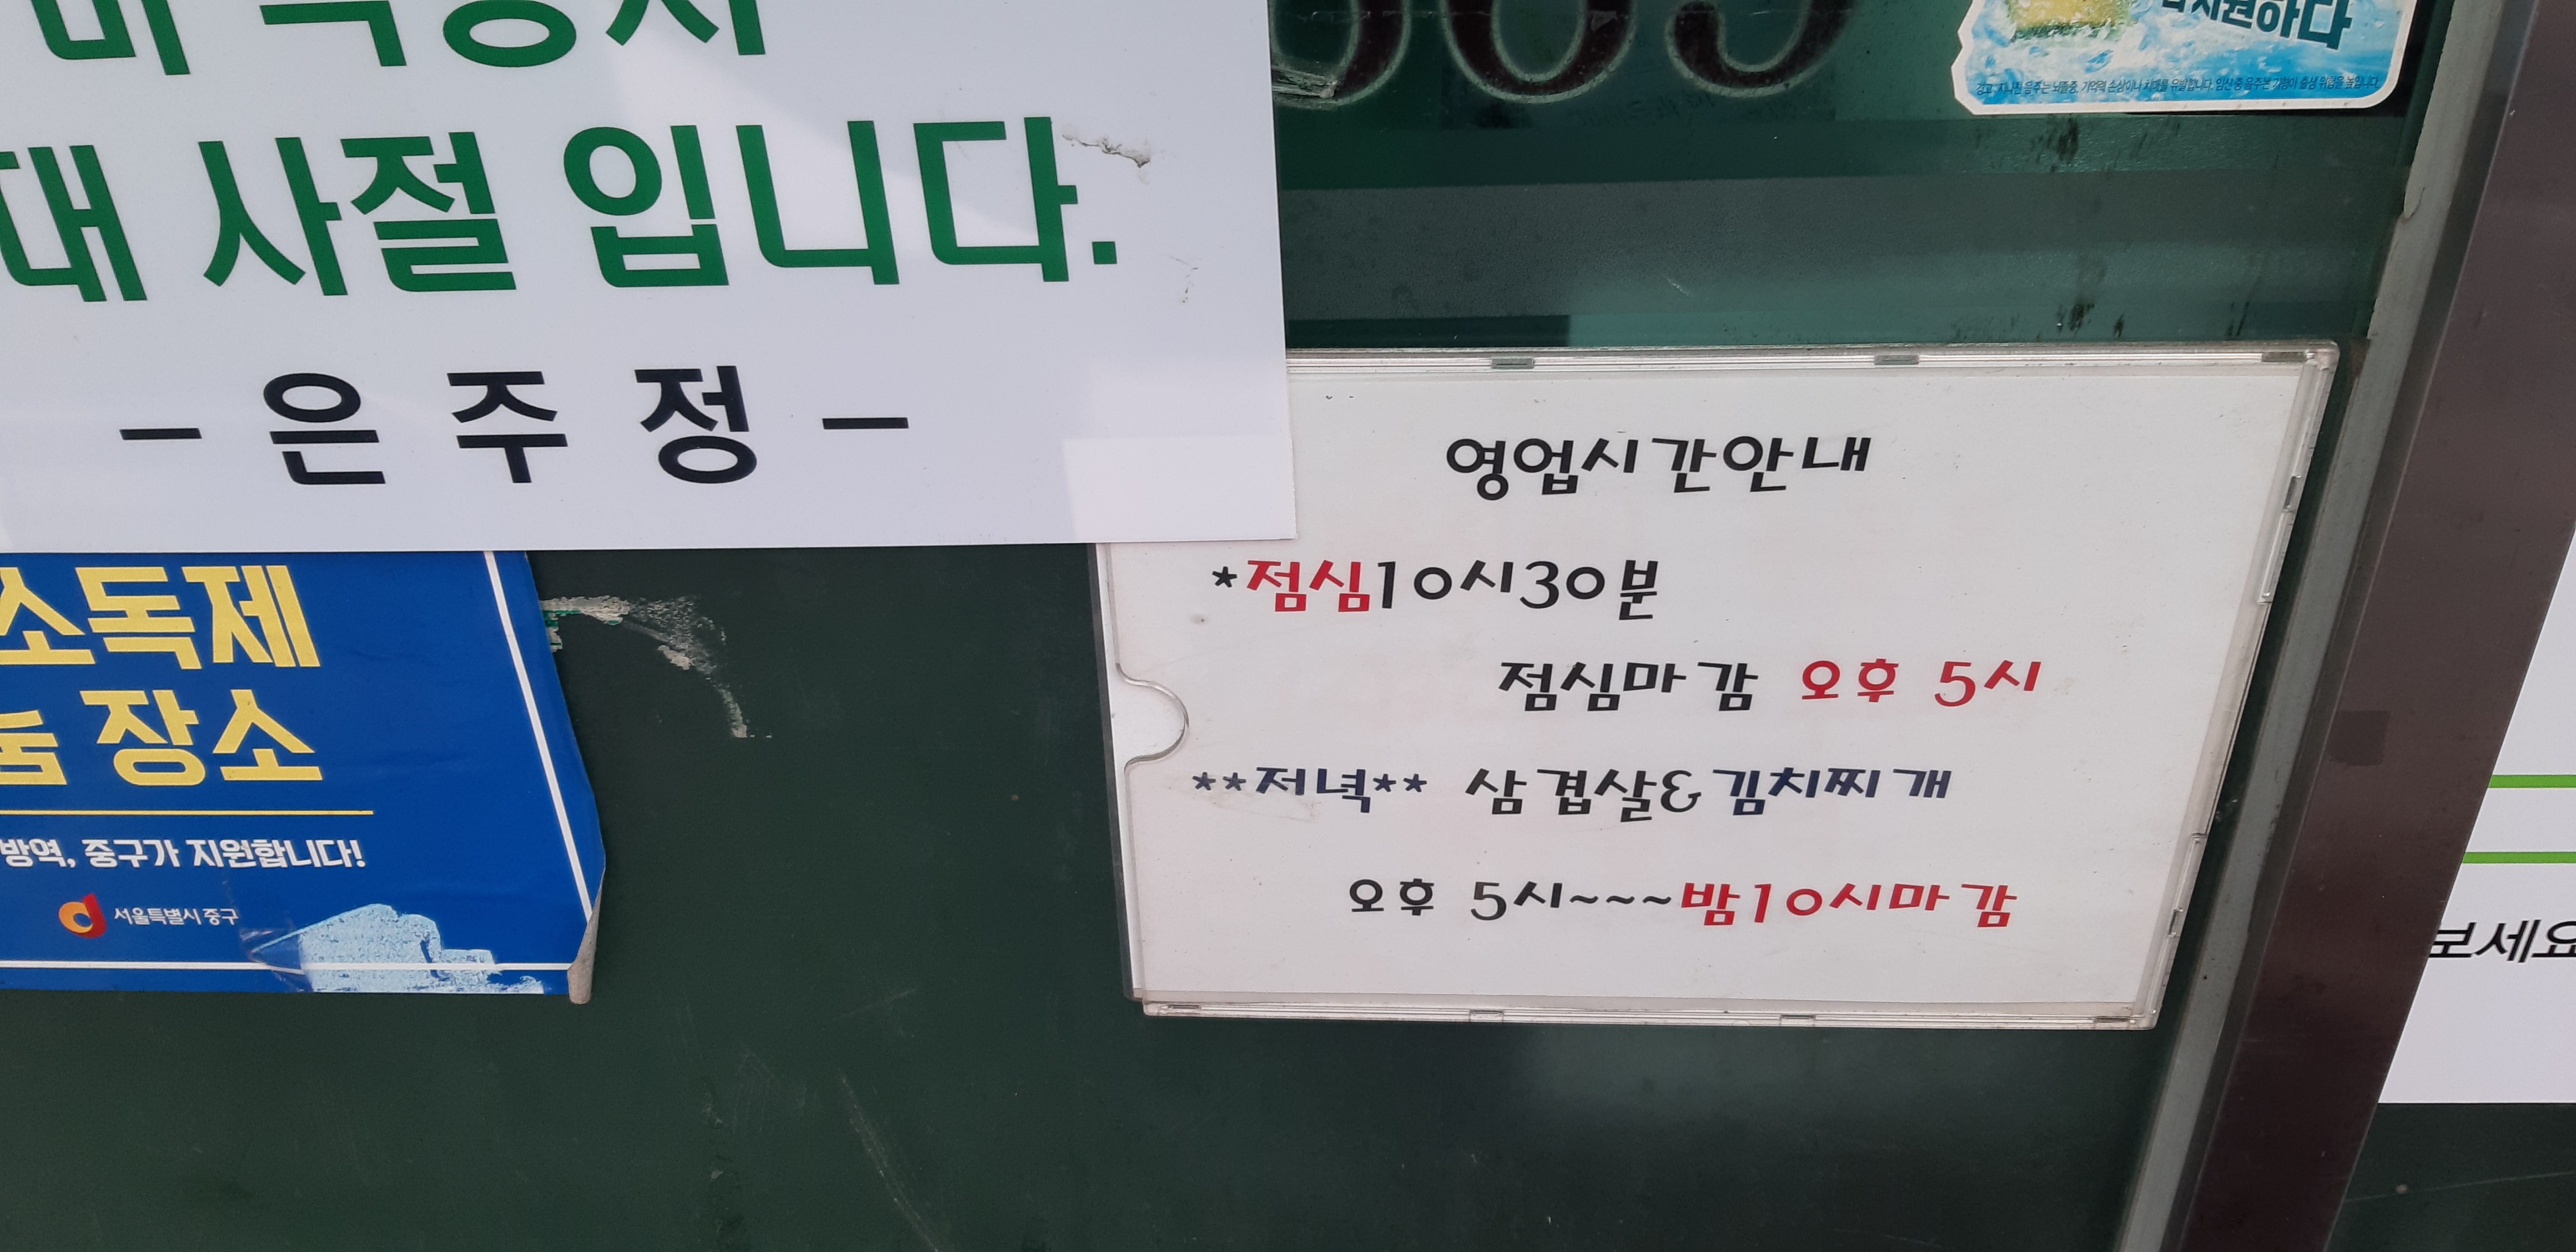 대 사절 입니다.
- 은 주 정 -
영업시간안내
*점심10시30분
점심마감 오후 5시
**저녁** 삼겹살&김치찌개
오후 5시~~~밤10시마감
소독제
장소
방역, 중구가 지원합니다!
서울특별시 중구
보세요